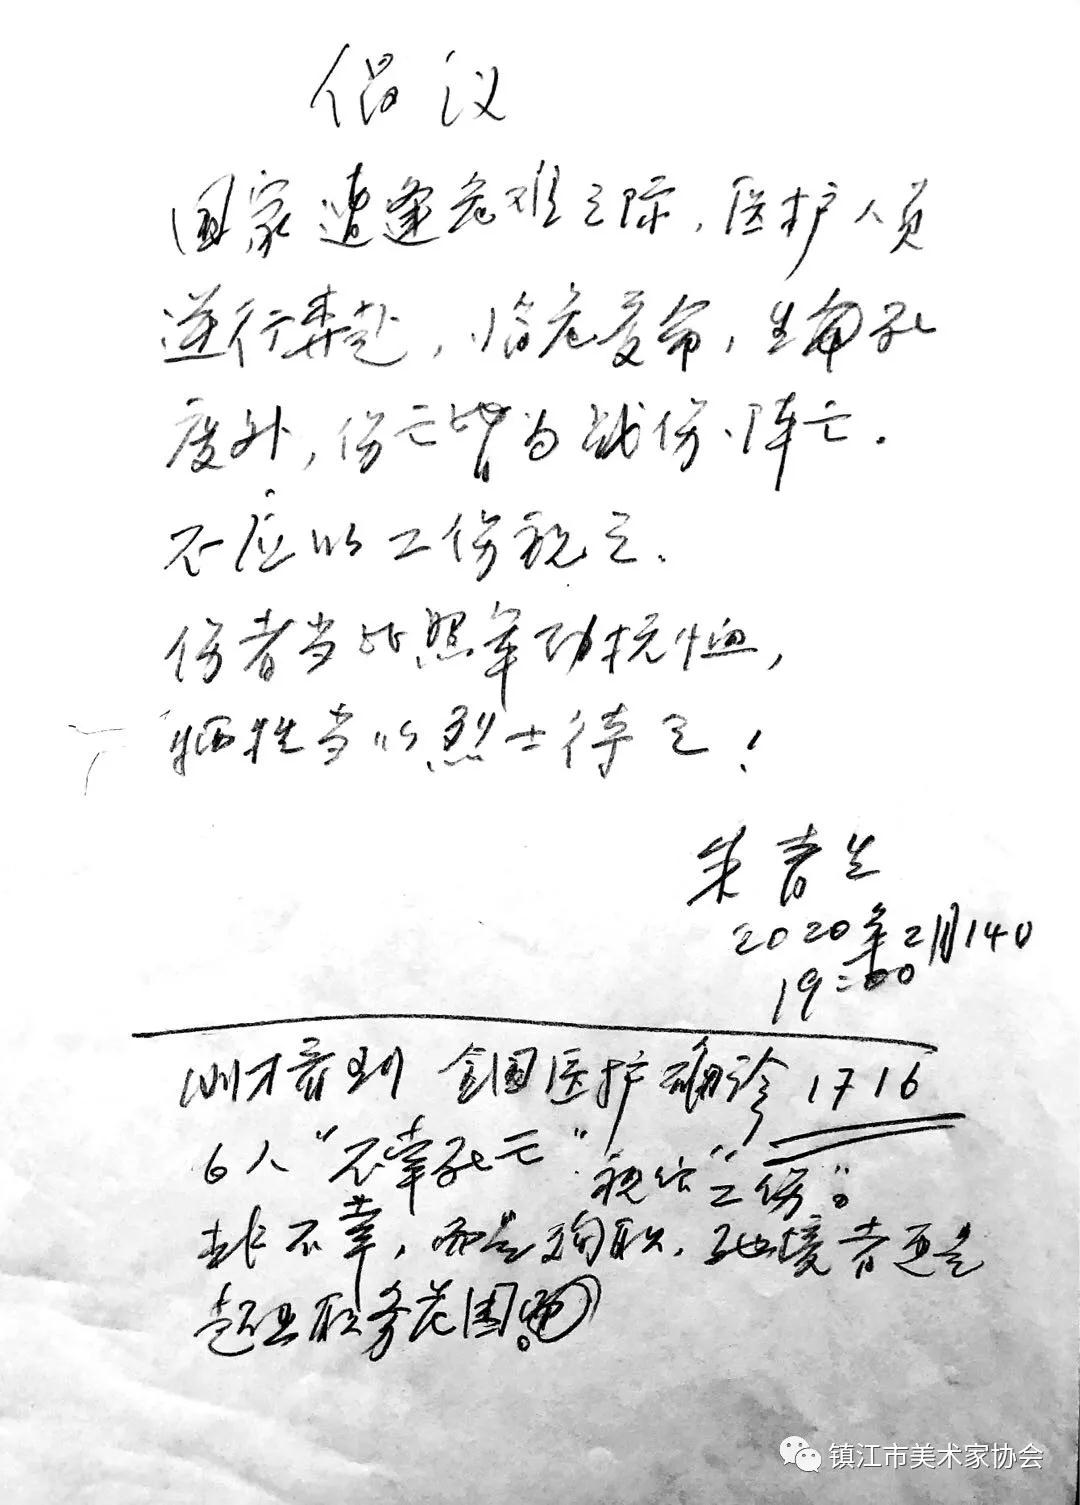 倡议
国家遭逢危难之际，医护人员
逆行奔赴，临危受命，生命孔
度外，伤亡皆为战伤、阵亡．
不应以工伤视之．
伤者当比照军功抚恤，
牺牲当以烈士待之！
朱青生
2020年2月14日
19:00
刚才看到 全国医护确诊1716
6人“不幸死亡”视作“工伤”。
非不幸，而是殉职．者更是
超出职务范围。
镇江市美术家协会